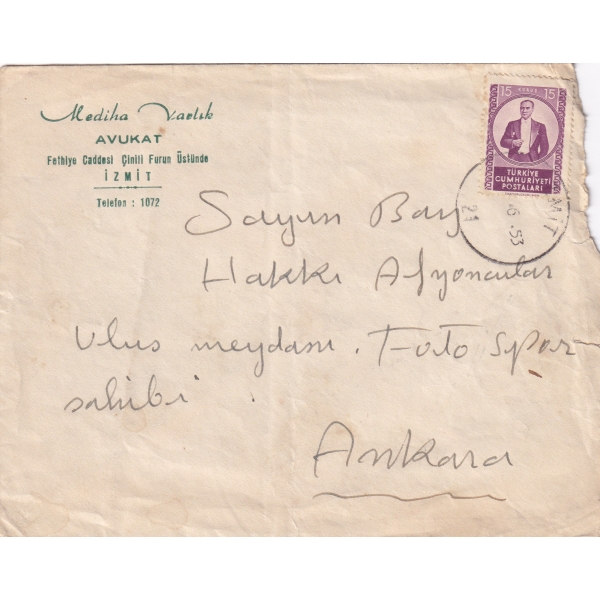 Mediha Varlık
AVUKAT
Fethiye Caddesi Çinili Furun Üstünde
İZMİT
Telefon : 1072
15 KURUŞ 15
TÜRKİYE
CUMHURİYETİ
POSTALARI
MİT
6 .53
21
Sayın Bay
Hakkı Afyoncular
Ulus meydanı. Foto Spor
sahibi
Ankara